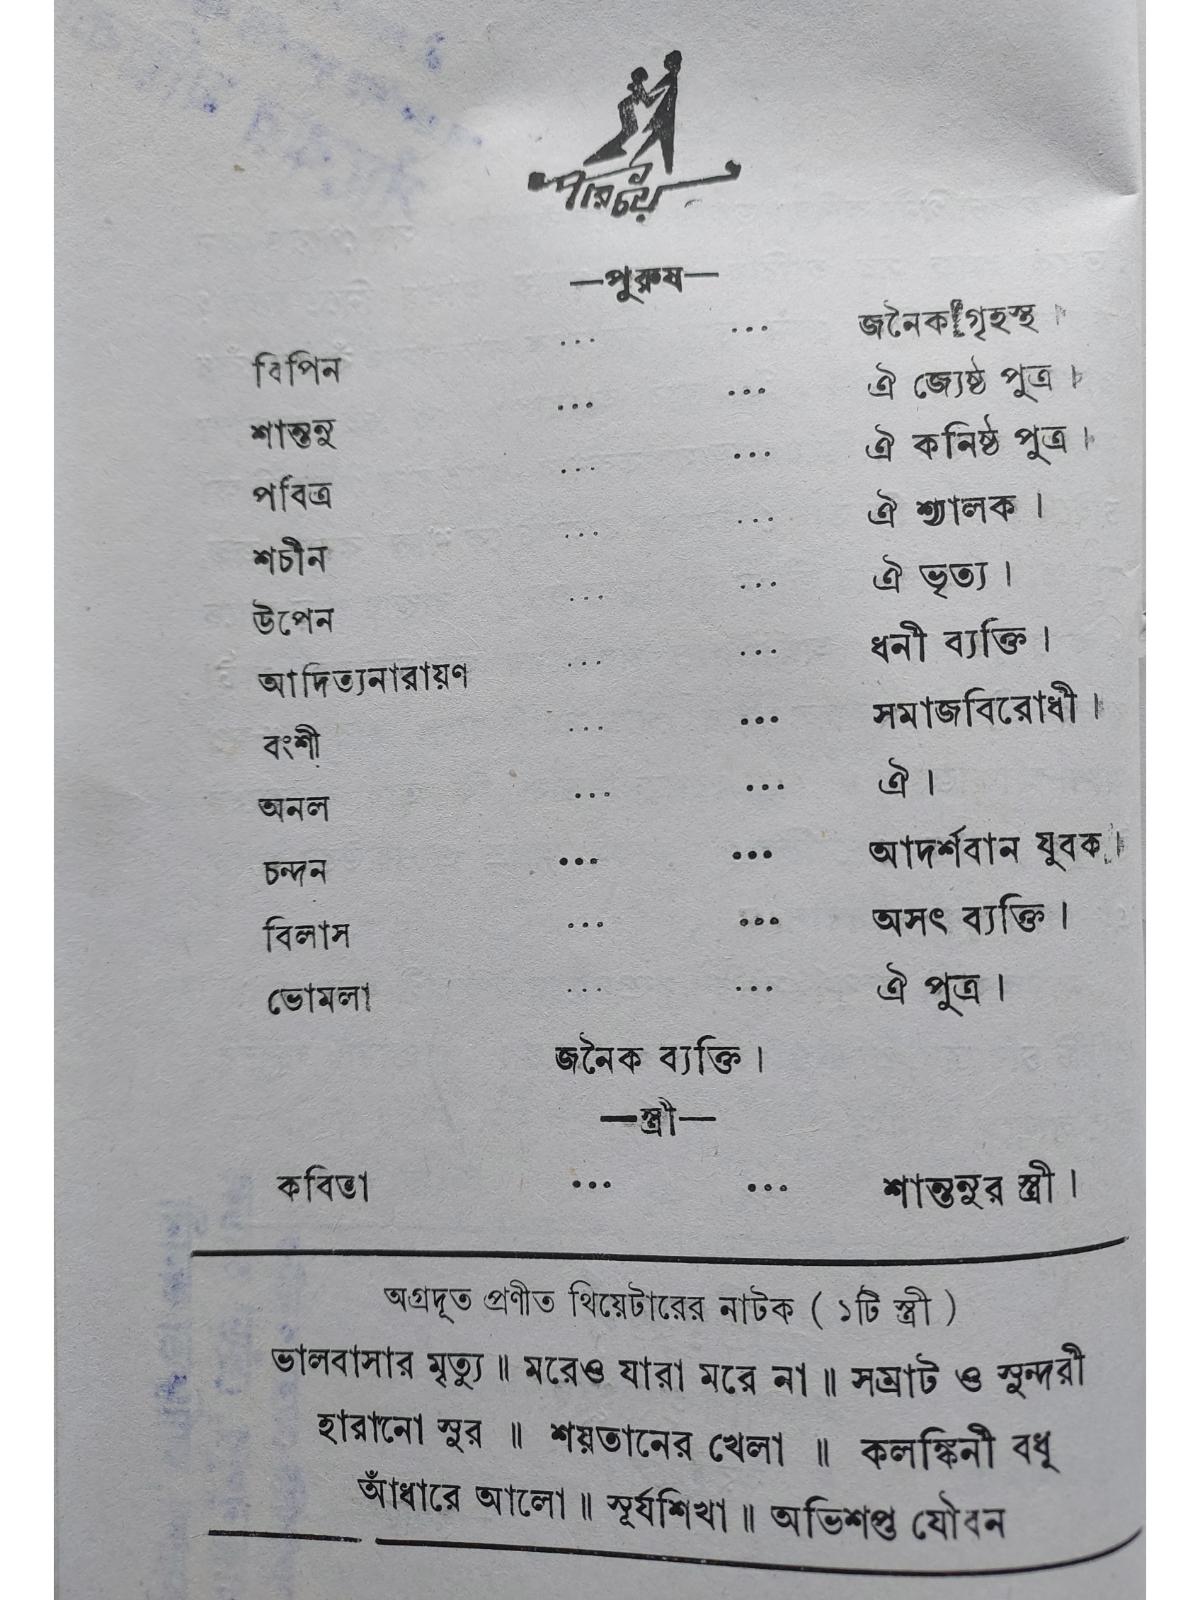 পরিচয়
—পুরুষ—
বিপিন ... ... জনৈক গৃহস্থ।
শান্তনু ... ... ঐ জ্যেষ্ঠ পুত্র।
পবিত্র ... ... ঐ কনিষ্ঠ পুত্র।
শচীন ... ... ঐ শ্যালক।
উপেন ... ... ঐ ভৃত্য।
আদিত্যনারায়ণ ... ... ধনী ব্যক্তি।
বংশী ... ... সমাজবিরোধী।
অনল ... ... ঐ।
চন্দন ... ... আদর্শবান যুবক।
বিলাস ... ... অসৎ ব্যক্তি।
ভোমলা ... ... ঐ পুত্র।
জনৈক ব্যক্তি।
—স্ত্রী—
কবিতা ... ... শান্তনুর স্ত্রী।
অগ্রদূত প্রণীত থিয়েটারের নাটক ( ১টি স্ত্রী )
ভালবাসার মৃত্যু ॥ মরেও যারা মরে না ॥ সম্রাট ও সুন্দরী
হারানো সুর ॥ শয়তানের খেলা ॥ কলঙ্কিনী বধূ
আঁধারে আলো ॥ সূর্যশিখা ॥ অভিশপ্ত যৌবন